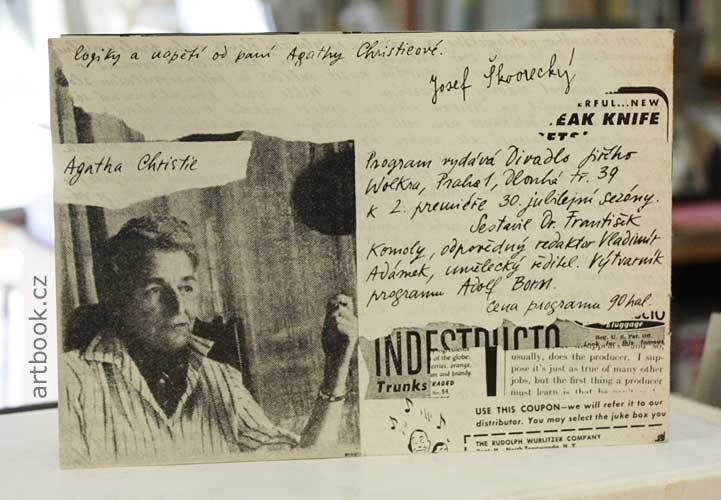 logiky a napětí od paní Agathy Christieové.
Josef Škvorecký
Agatha Christie
Program vydává Divadlo Jiřího
Wolkra, Praha 1, Dlouhá tř. 39
k 2. premiéře 30. jubilejní sezóny.
Sestavil Dr. František
Komoly, odpovědný redaktor Vladimír
Adámek, umělecký ředitel. Výtvarník
programu Adolf Born.
Cena programu 90 hal.
ERFUL...NEW
EAK KNIFE
SETS!
INDESTRUCTO
Trunks
luggage
Reg. U. S. Pat. Off.
Look for this famous
of the globe.
erries, orange,
um and brandy.
usually, does the producer. I sup-
pose it's just as true of many other
jobs, but the first thing a producer
must learn is that he
USE THIS COUPON—we will refer it to our
distributor. You may select the juke box you
THE RUDOLPH WURLITZER COMPANY
North Tonawanda, N. Y.
artbook.cz